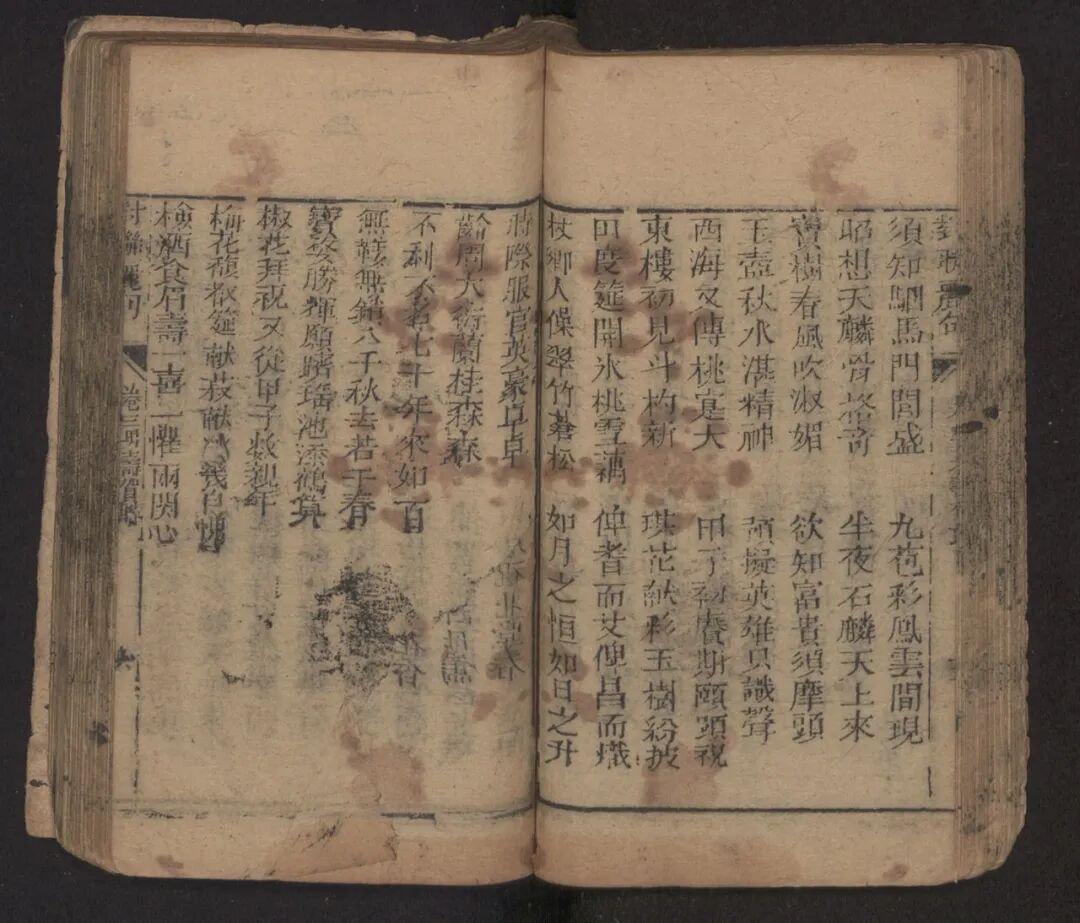 須知駟馬門閭盛　九苞彩鳳雲間現
昭想天麟骨格奇　半夜石麟天上來
寶樹春風吹淑媚　欲知富貴須摩頭
玉壺秋水湛精神　預擬英雄只識聲
西海又傳桃寔大　甲子初賡期頤頌祝
東樓初見斗杓新　琪花献彩玉樹紛披
田度筵開氷桃雪藕　俾耆而艾俾昌而熾
杖鄉人傑翠竹蒼松　如月之恒如日之升
時際服官英豪卓卓
齡周大衍蘭桂森森
不利不名七十年來如一百
無轅無鎖八千秋去若干春
寶婺勝輝願躋瑤池添鶴算
椒花拜祝又從甲子数親年
梅花馥郁筵献菽献
檢酒食眉壽一喜一懼兩関心
對聯麗句　卷三